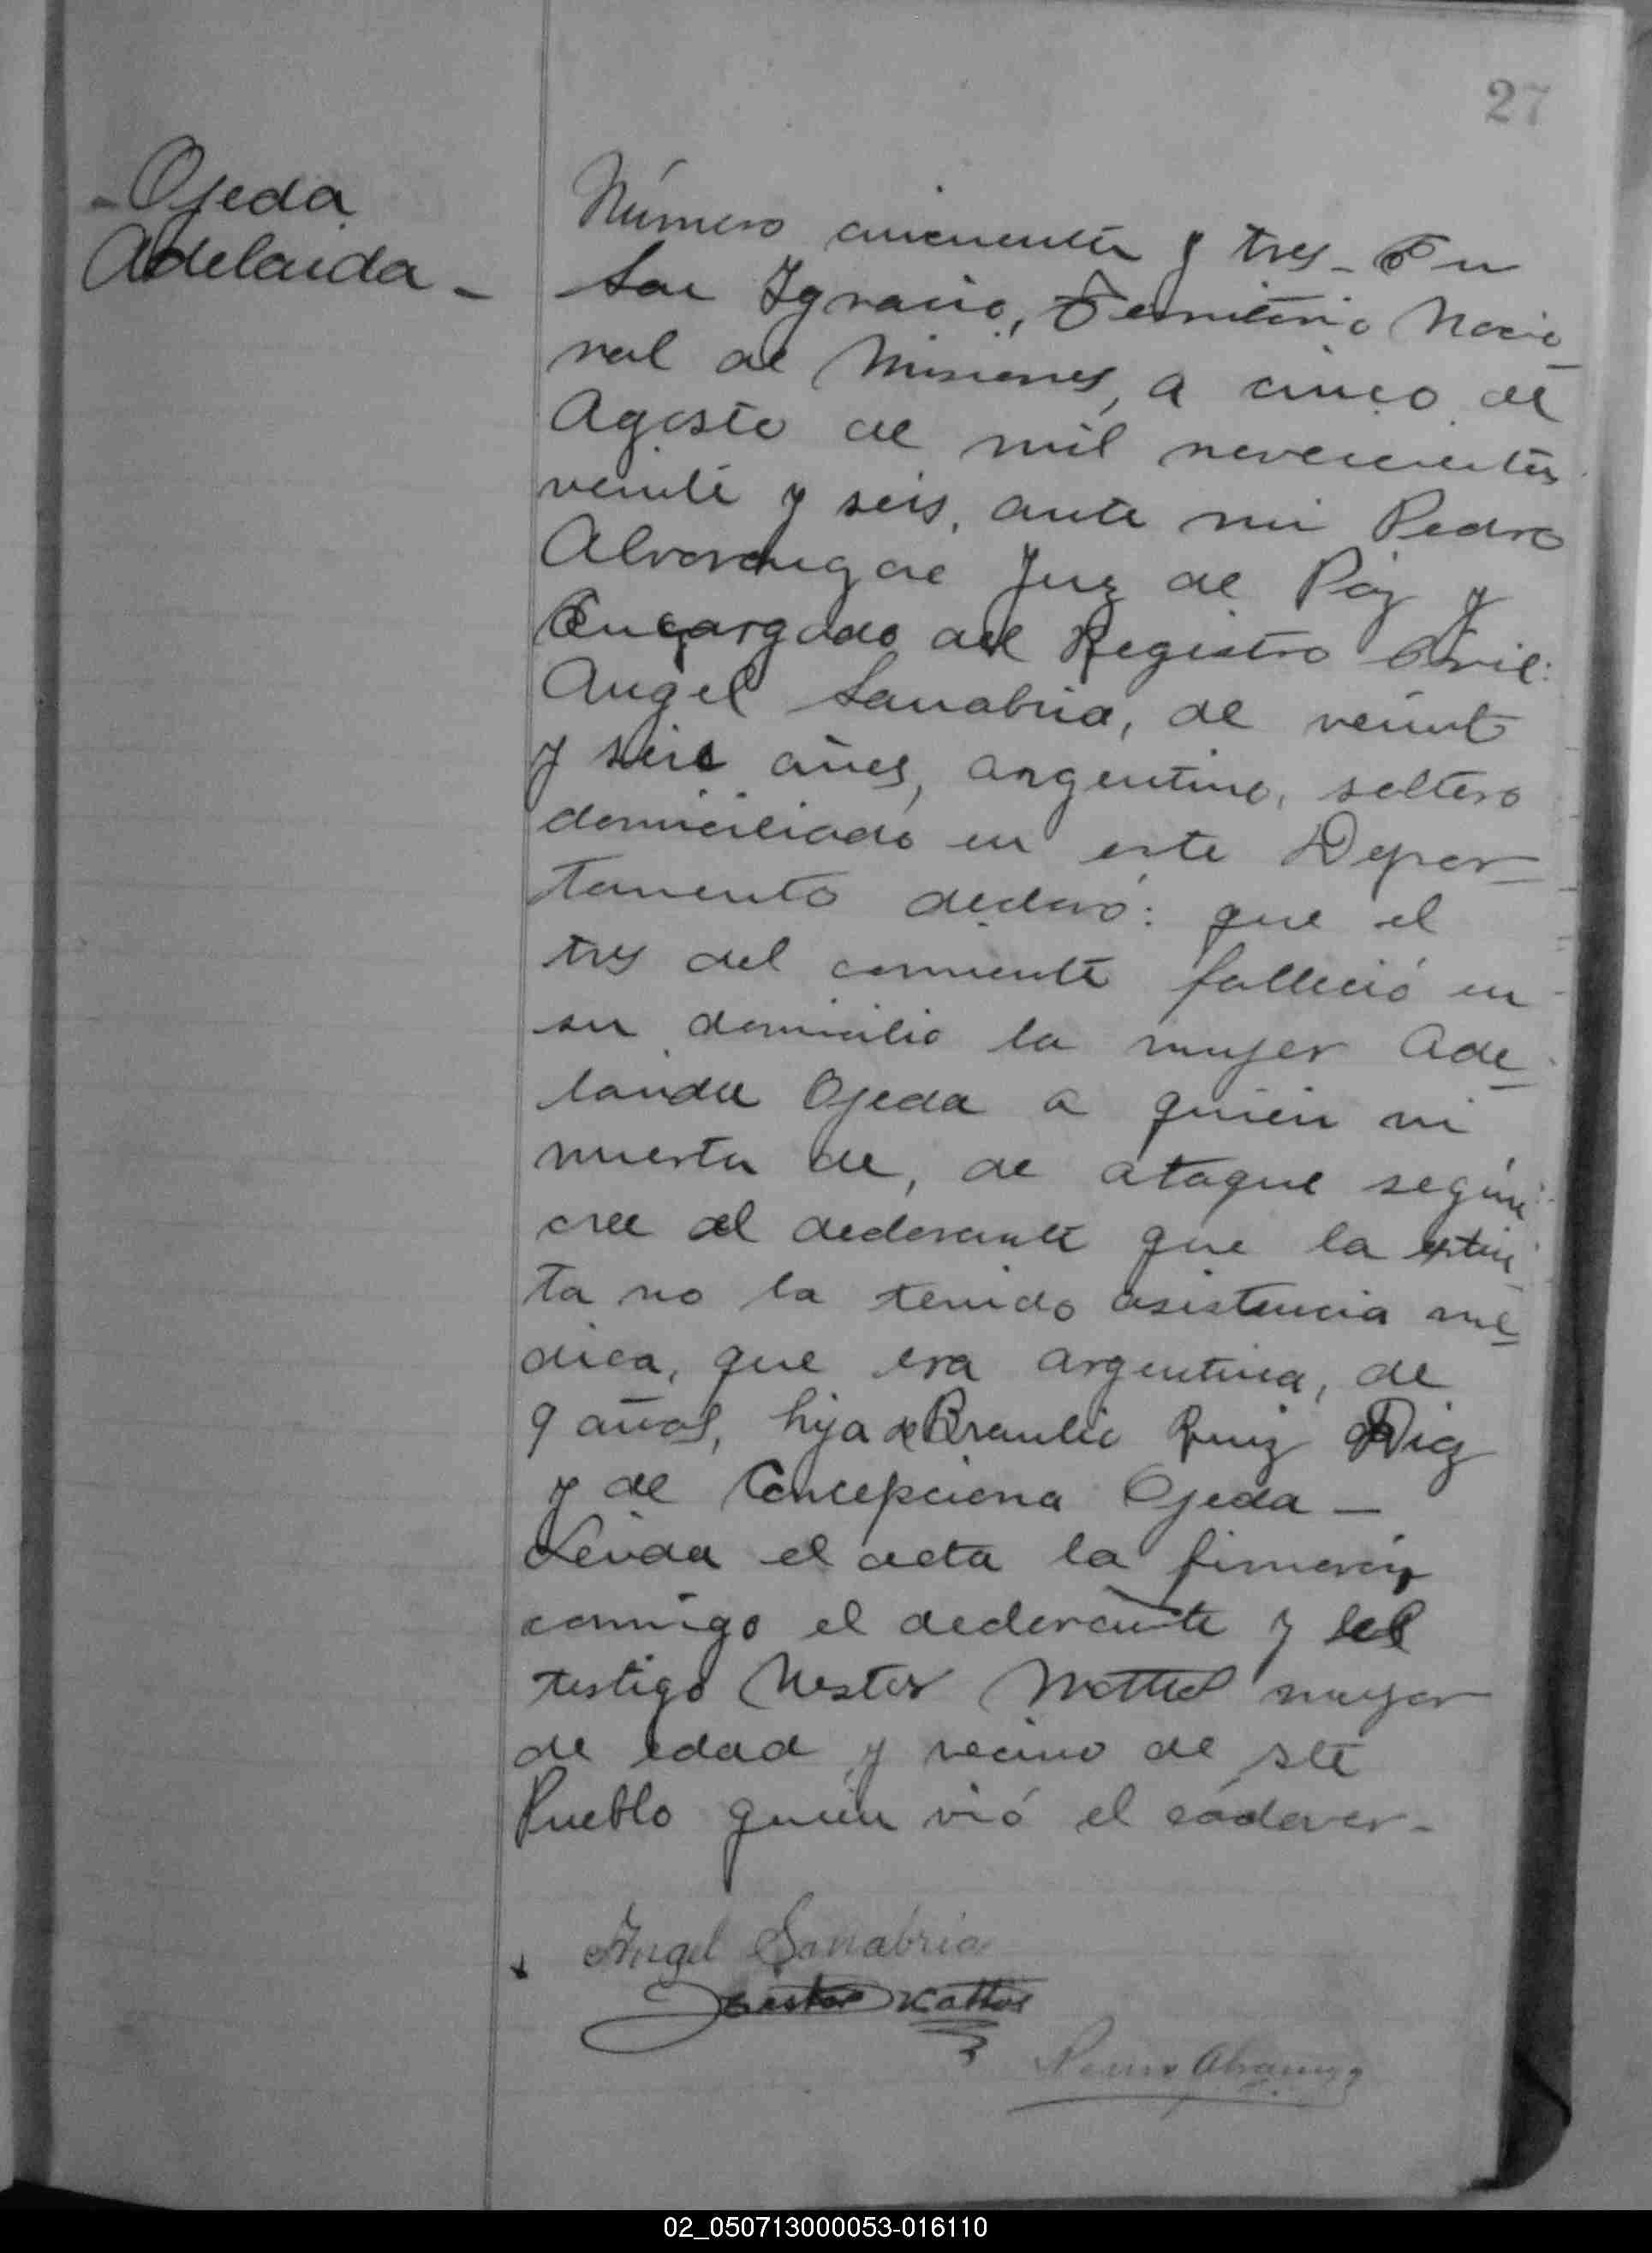 27
- Ojeda
Adelaida -
Número cincuenta y tres - En
San Ignacio, Territorio Nacio
nal de Misiones, a cinco de
Agosto de mil novecientos
veinte y seis, ante mi Pedro
Juez de Paz y
Encargado del Registro Civil:
Angel Sanabria, de veinte
y seis años, argentino, soltero
domiciliado en este Depar-
tamento declaró: que el
tres del corriente falleció en
su domicilio la mujer Ade-
laida Ojeda a quien vi
muerta de, de ataque según
cree el declarante que la extin
ta no ha tenido asistencia mé-
dica, que era argentina, de
9 años, hija de Braulio Ruiz Diaz
y de Concepciona Ojeda -
Leida el acta la firmarón
conmigo el declarante y el
testigo Nestor Mattos mayor
de edad y vecino de ste
Pueblo quien vió el cádaver -
Angel Sanabria
Nestor Mattos
02_050713000053-016110